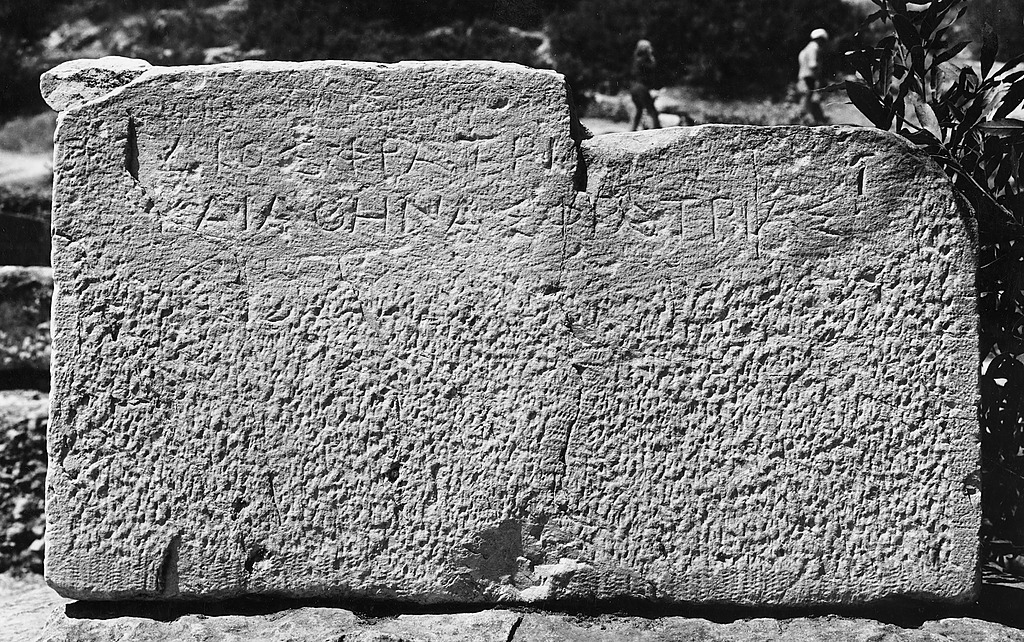 ΔΙΟΣΦΡΑΤΡΙ
ΚΑΙΑΘΗΝΑΣΦΡΑΤΡΙΑΣ